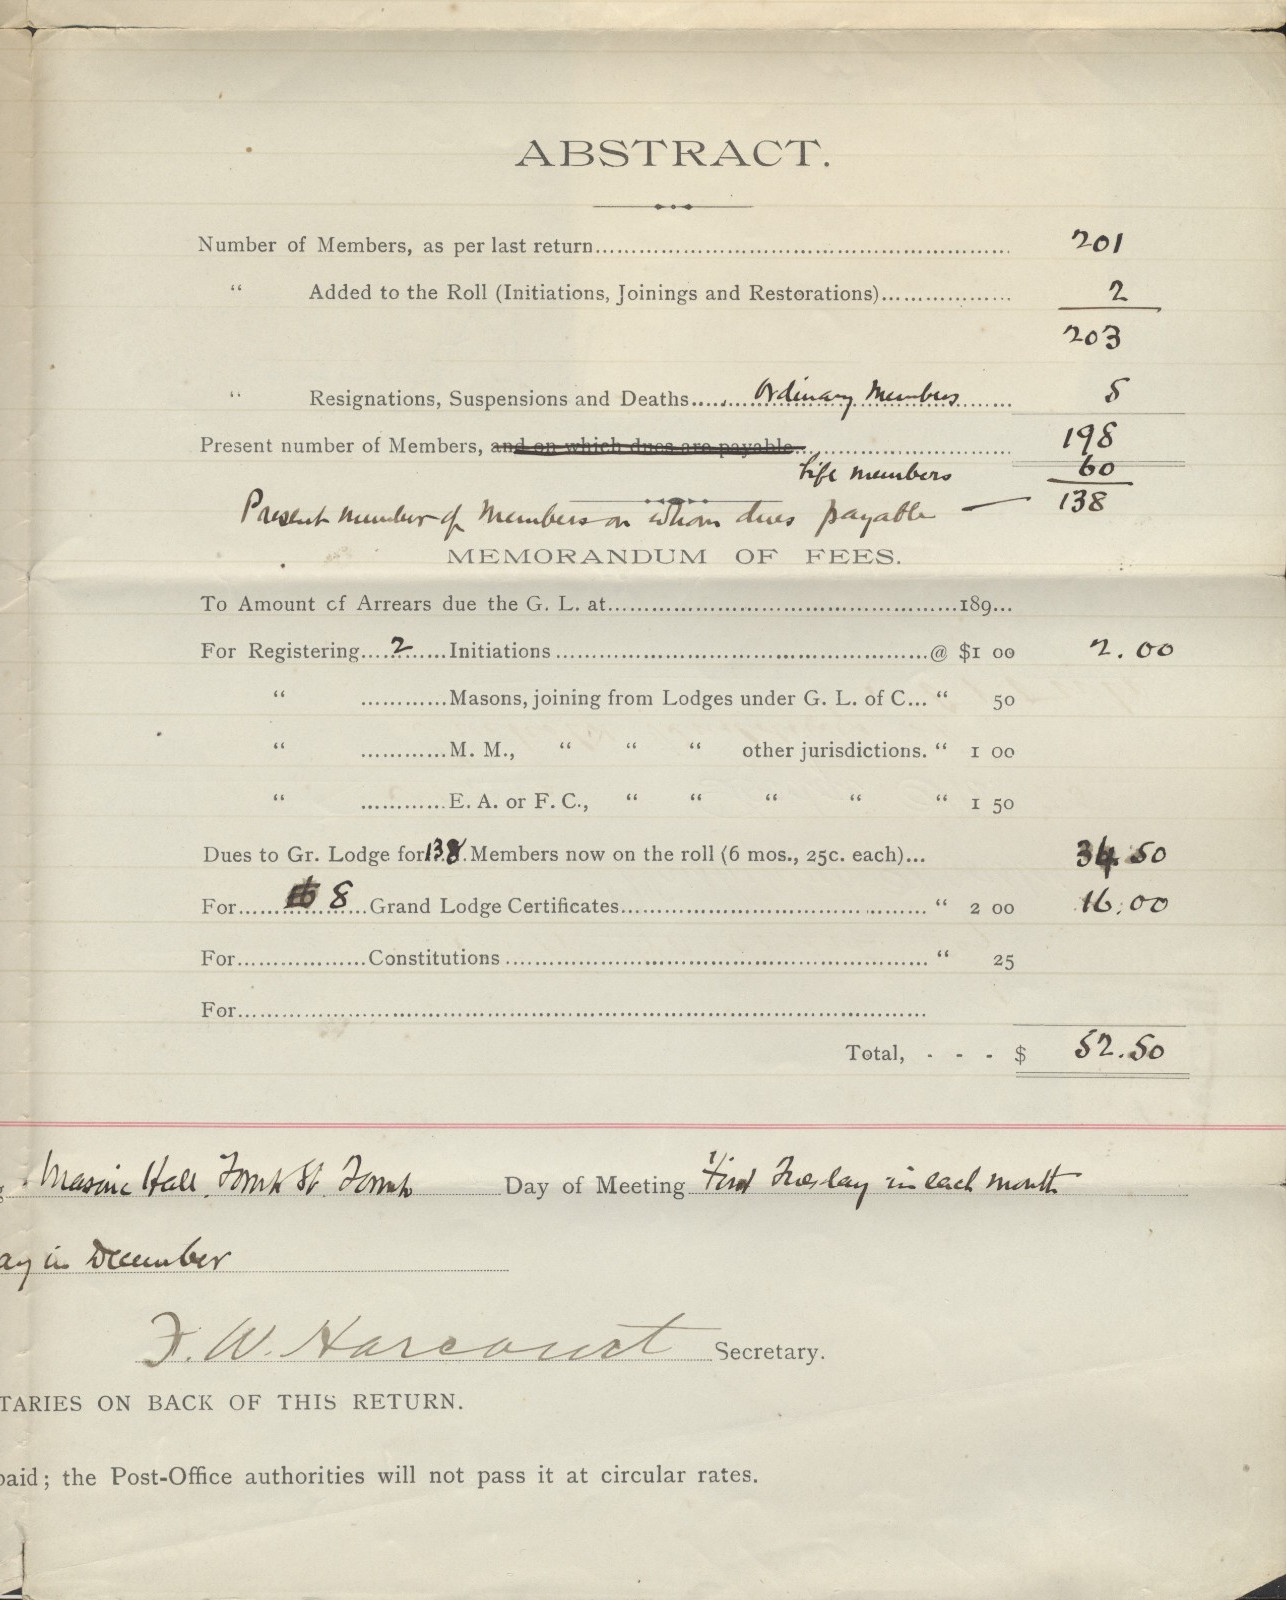 ABSTRACT.
Number of Members, as per last return.......... 201
" Added to the Roll (Initiations, Joinings and Restorations).......... 2
203
" Resignations, Suspensions and Deaths..... Ordinary Members ..... 5
Present number of Members, and on which dues are payable.......... 198
Life members 60
Present number of Members on whom dues payable — 138
MEMORANDUM OF FEES.
To Amount of Arrears due the G. L. at..........189...
For Registering....2......Initiations..........@ $1 00 2.00
" ..........Masons, joining from Lodges under G. L. of C... " 50
" ..........M. M., " " " other jurisdictions. " 1 00
" ..........E. A. or F. C., " " " " " 1 50
Dues to Gr. Lodge for 138 Members now on the roll (6 mos., 25c. each)... 34.50
For.......... 8 ...Grand Lodge Certificates.......... " 2 00 16.00
For..........Constitutions.......... " 25
For..........
Total, - - - $ 52.50
Masonic Hall, St. Day of Meeting First Tuesday in each month
ay in December
F. W. Harcourt Secretary.
TARIES ON BACK OF THIS RETURN.
paid; the Post-Office authorities will not pass it at circular rates.